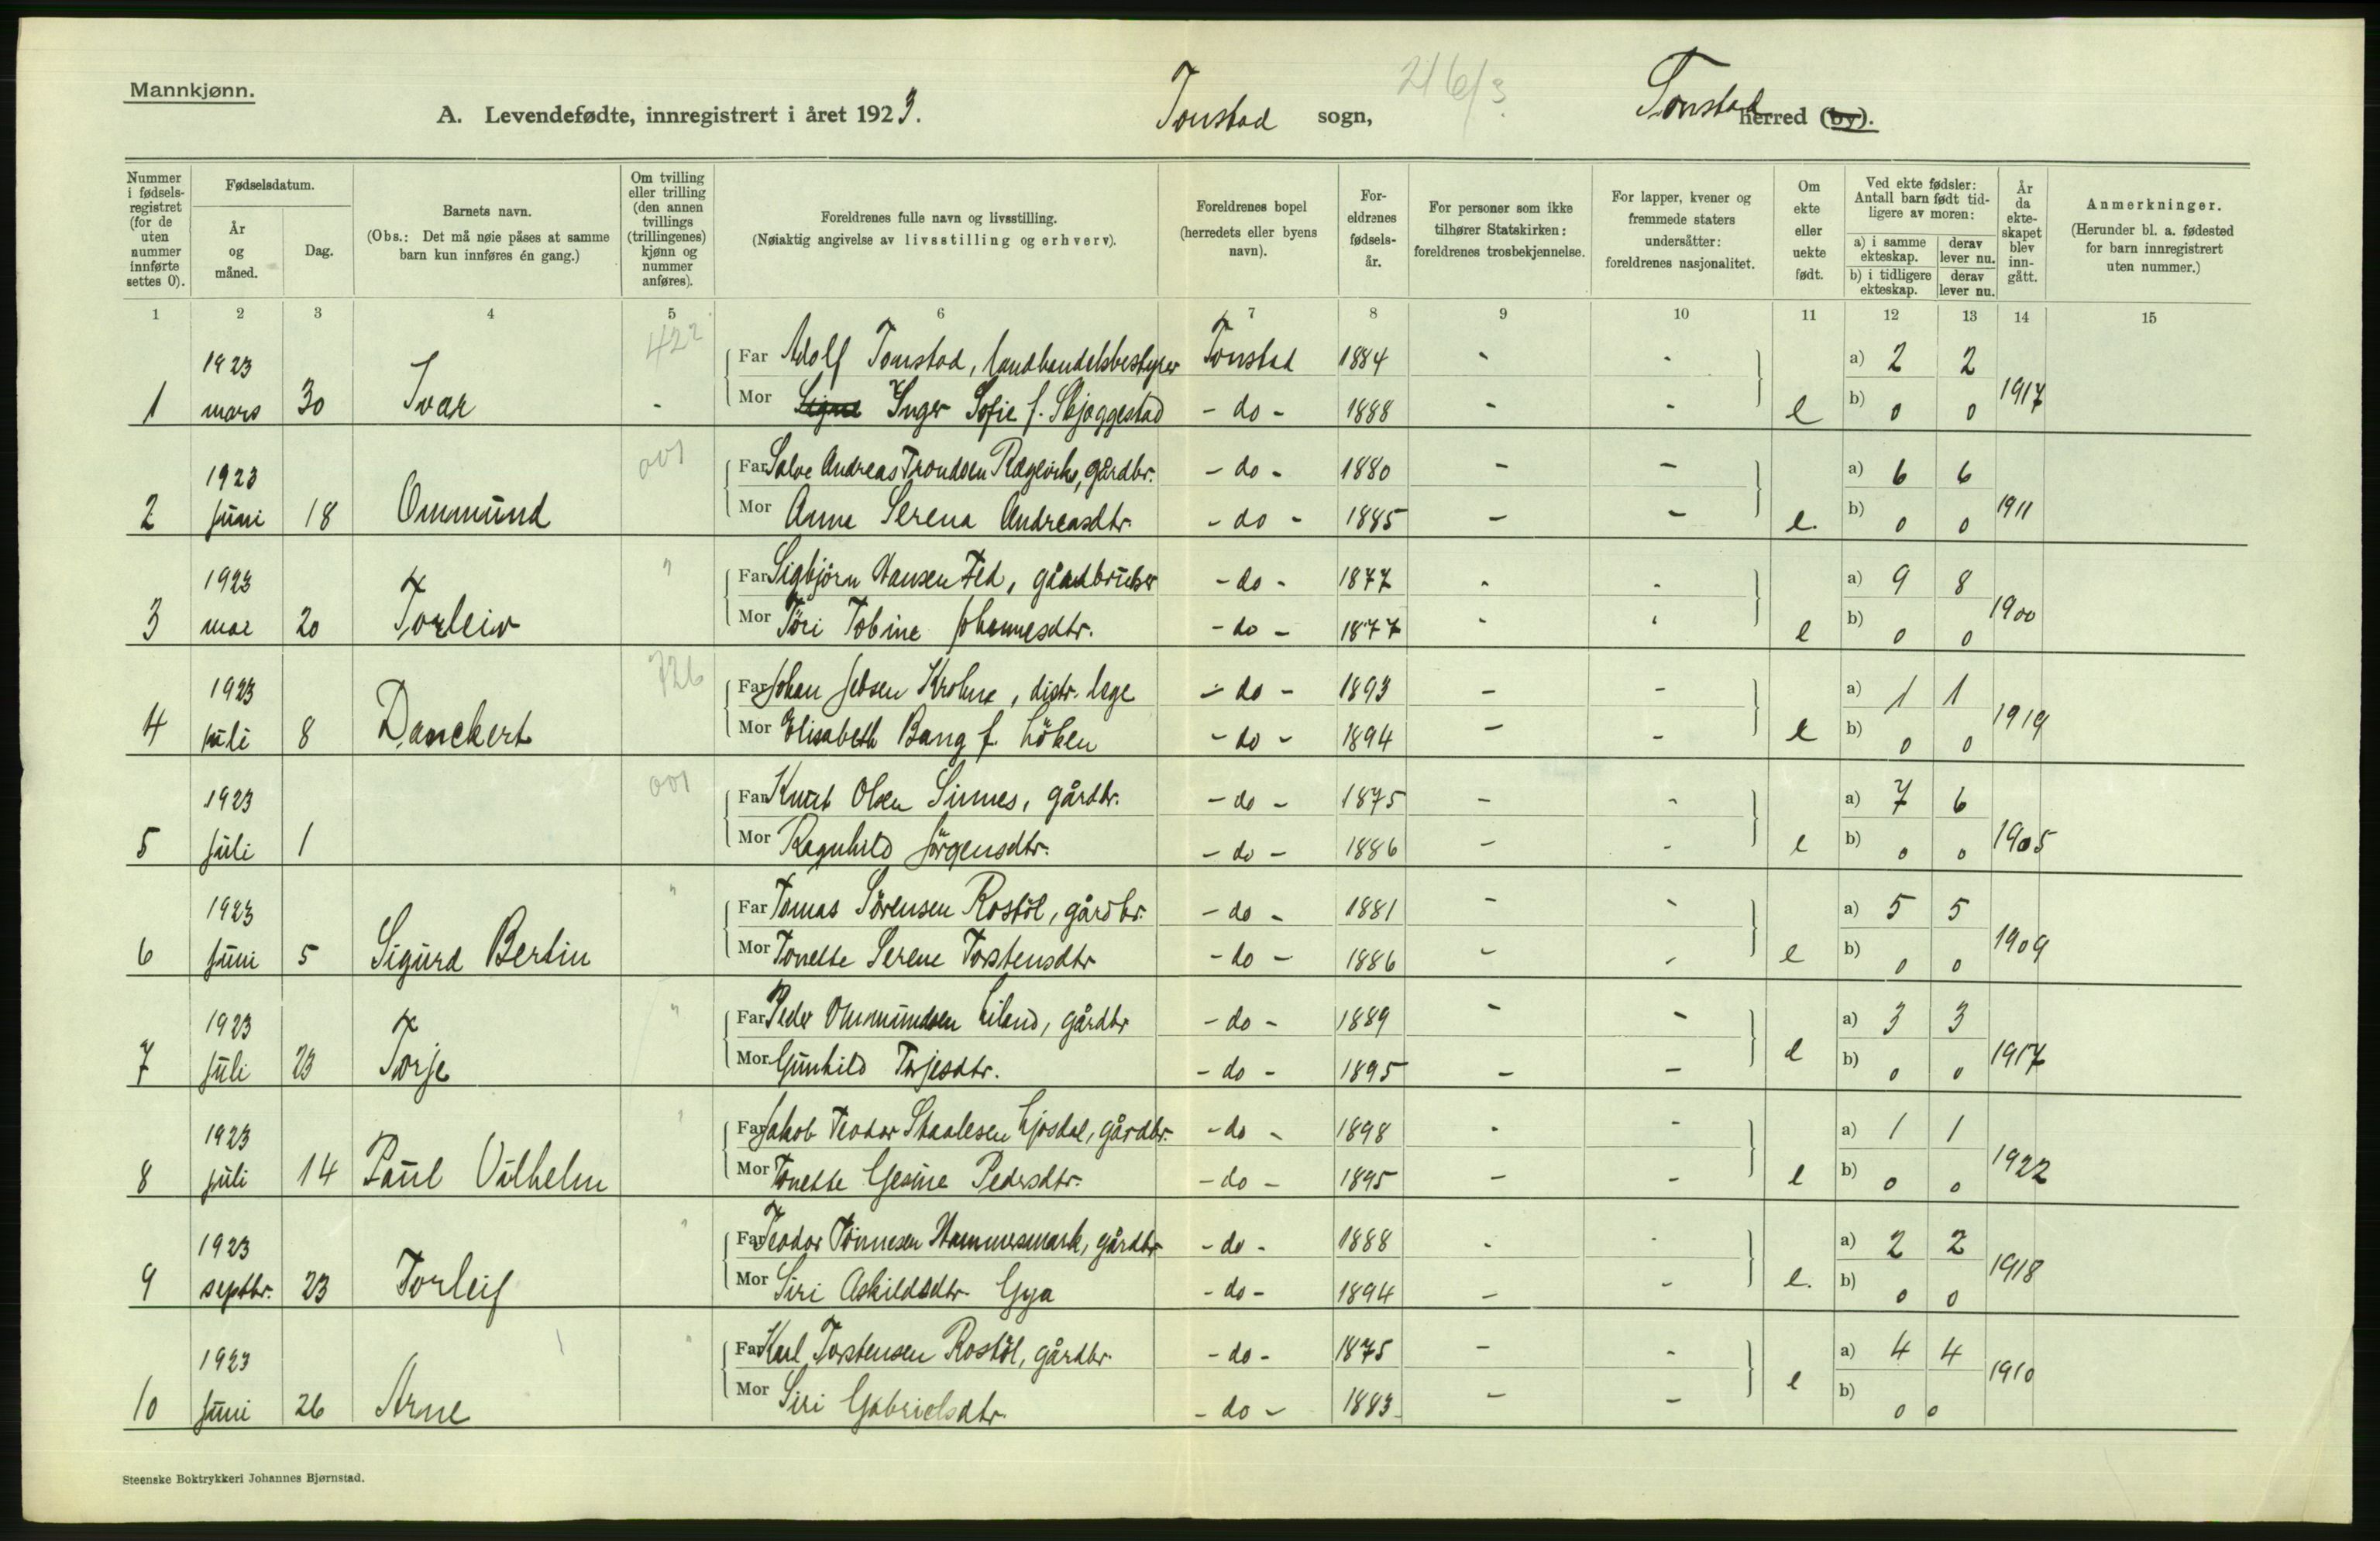 Mannkjønn.
A. Levendefødte, innregistrert i året 1923. Tonstad sogn, 216/3 Tonstad herred (by).
Nummer i fødsels-registret (for de uten nummer innførte settes 0).
Fødselsdatum.
År og måned.
Dag.
Barnets navn.
(Obs.: Det må nøie påses at samme barn kun innføres én gang.)
Om tvilling eller trilling (den annen tvillings (trillingenes) kjønn og nummer anføres).
Foreldrenes fulle navn og livsstilling.
(Nøiaktig angivelse av livsstilling og erhverv).
Foreldrenes bopel (herredets eller byens navn).
For-eldrenes fødsels-år.
For personer som ikke tilhører Statskirken: foreldrenes trosbekjennelse.
For lapper, kvener og fremmede staters undersåtter: foreldrenes nasjonalitet.
Om ekte eller uekte født.
Ved ekte fødsler: Antall barn født tid-ligere av moren:
a) i samme ekteskap. derav lever nu.
b) i tidligere ekteskap. derav lever nu.
År da ekte-skapet blev inn-gått.
Anmerkninger.
(Herunder bl. a. fødested for barn innregistrert uten nummer.)
1 2 3 4 5 6 7 8 9 10 11 12 13 14 15
1923 422 Far Adolf Tonstad, landhandelsbestyrer Tonstad 1884 - - a) 2 2
1 mars 30 Ivar - Mor Signe Inger Sofie f. Skjeggestad - do - 1888 - - e b) 0 0 1917
1923 001 Far Salve Andreas Trondsen Rægevik, gårdbr. - do - 1880 - - a) 6 6
2 juni 18 Ommund Mor Anna Serena Andreasdtr. - do - 1885 - - e. b) 0 0 1911
1923 " Far Sigbjörn Hansen Fed, gårdbruker - do - 1877 - - a) 9 8
3 mai 20 Torleiv Mor Töri Tobine Johannesdtr. - do - 1877 - - e b) 0 0 1900
1923 726 Far Johan Jebsen Krohne, distr. læge - do - 1893 - - a) 1 1
4 juli 8 Danckert Mor Elisabeth Bang f. Löken - do - 1894 - - e b) 0 0 1919
1923 001 Far Knut Olsen Sinnes, gårdbr. - do - 1875 - - a) 7 6
5 juli 1 Mor Ragnhild Jörgensdtr. - do - 1886 - - e b) 0 0 1905
1923 " Far Tomas Sörensen Rostöl, gårdbr. - do - 1881 - - a) 5 5
6 juni 5 Sigurd Bertin Mor Tonette Serene Torstensdtr - do - 1886 - - e b) 0 0 1909
1923 " Far Peder Ommundsen Liland, gårdbr - do - 1889 - - a) 3 3
7 juli 23 Torje Mor Gunhild Torjesdtr. - do - 1895 - - e b) 0 0 1917
1923 " Far Jakob Teodor Staalesen Ljosdal, gårdbr. - do - 1898 - - a) 1 1
8 juli 14 Paul Vilhelm Mor Tonette Gesine Pedersdtr. - do - 1895 - - e b) 0 0 1922
1923 " Far Teodor Tönnesen Hammersmark, gårdbr - do - 1888 - - a) 2 2
9 septbr. 23 Torleif Mor Siri Askildsdtr Gya - do - 1894 - - e. b) 0 0 1918
1923 " Far Karl Torstensen Rostöl, gårdbr. - do - 1875 - - a) 4 4
10 juni 26 Arne Mor Siri Gabrielsdtr. - do - 1883 - - e b) 0 0 1910
Steenske Boktrykkeri Johannes Bjørnstad.